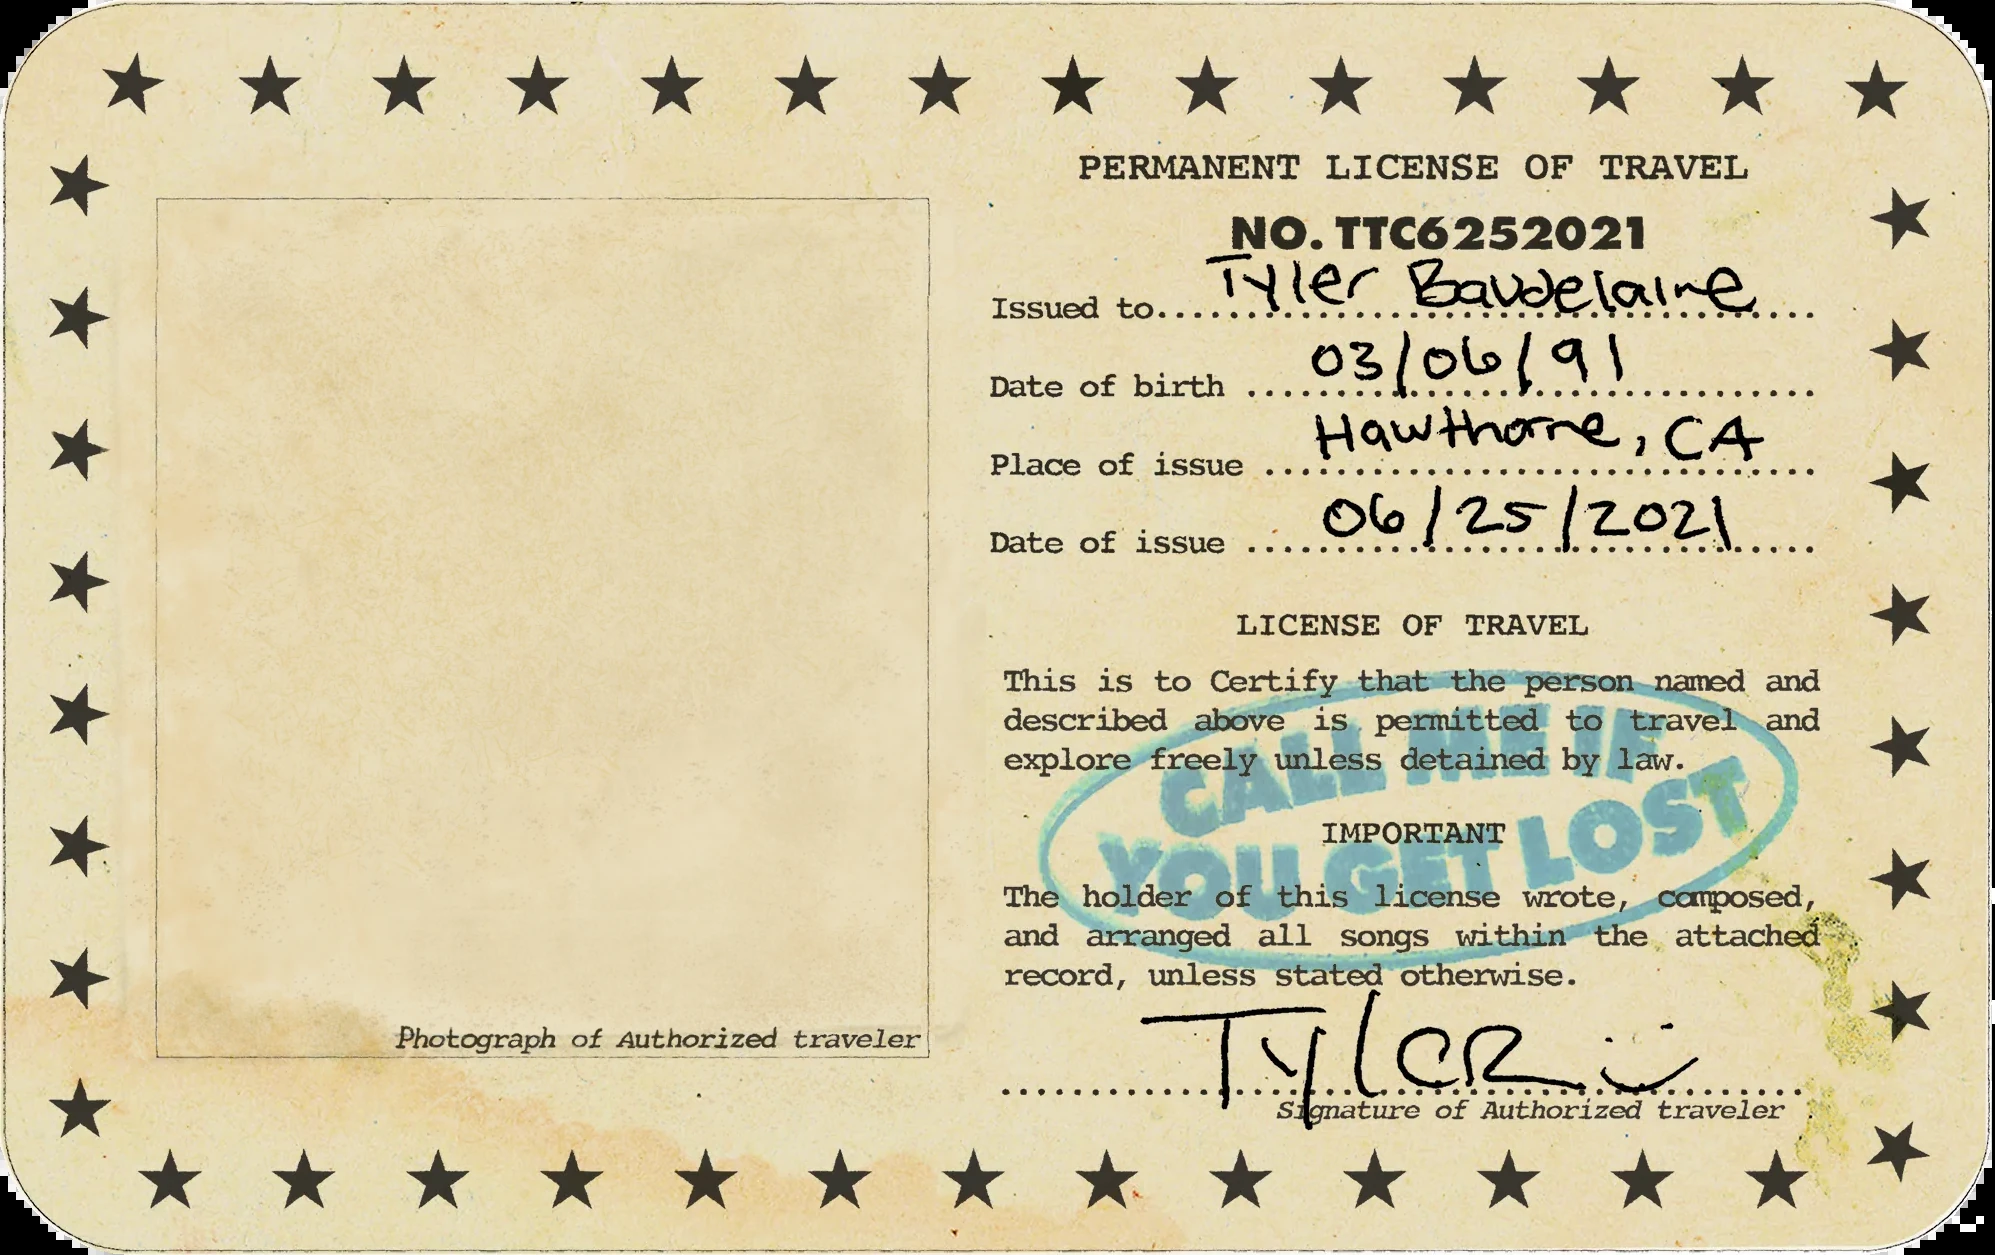 PERMANENT LICENSE OF TRAVEL
NO. TTC6252021
Issued to.... Tyler Baudelaire
Date of birth .... 03/06/91
Place of issue .... Hawthorne, CA
Date of issue .... 06/25/2021
LICENSE OF TRAVEL
This is to Certify that the person named and
described above is permitted to travel and
explore freely unless detained by law.
CALL ME IF
YOU GET LOST
IMPORTANT
The holder of this license wrote, composed,
and arranged all songs within the attached
record, unless stated otherwise.
Tyler
Signature of Authorized traveler
Photograph of Authorized traveler